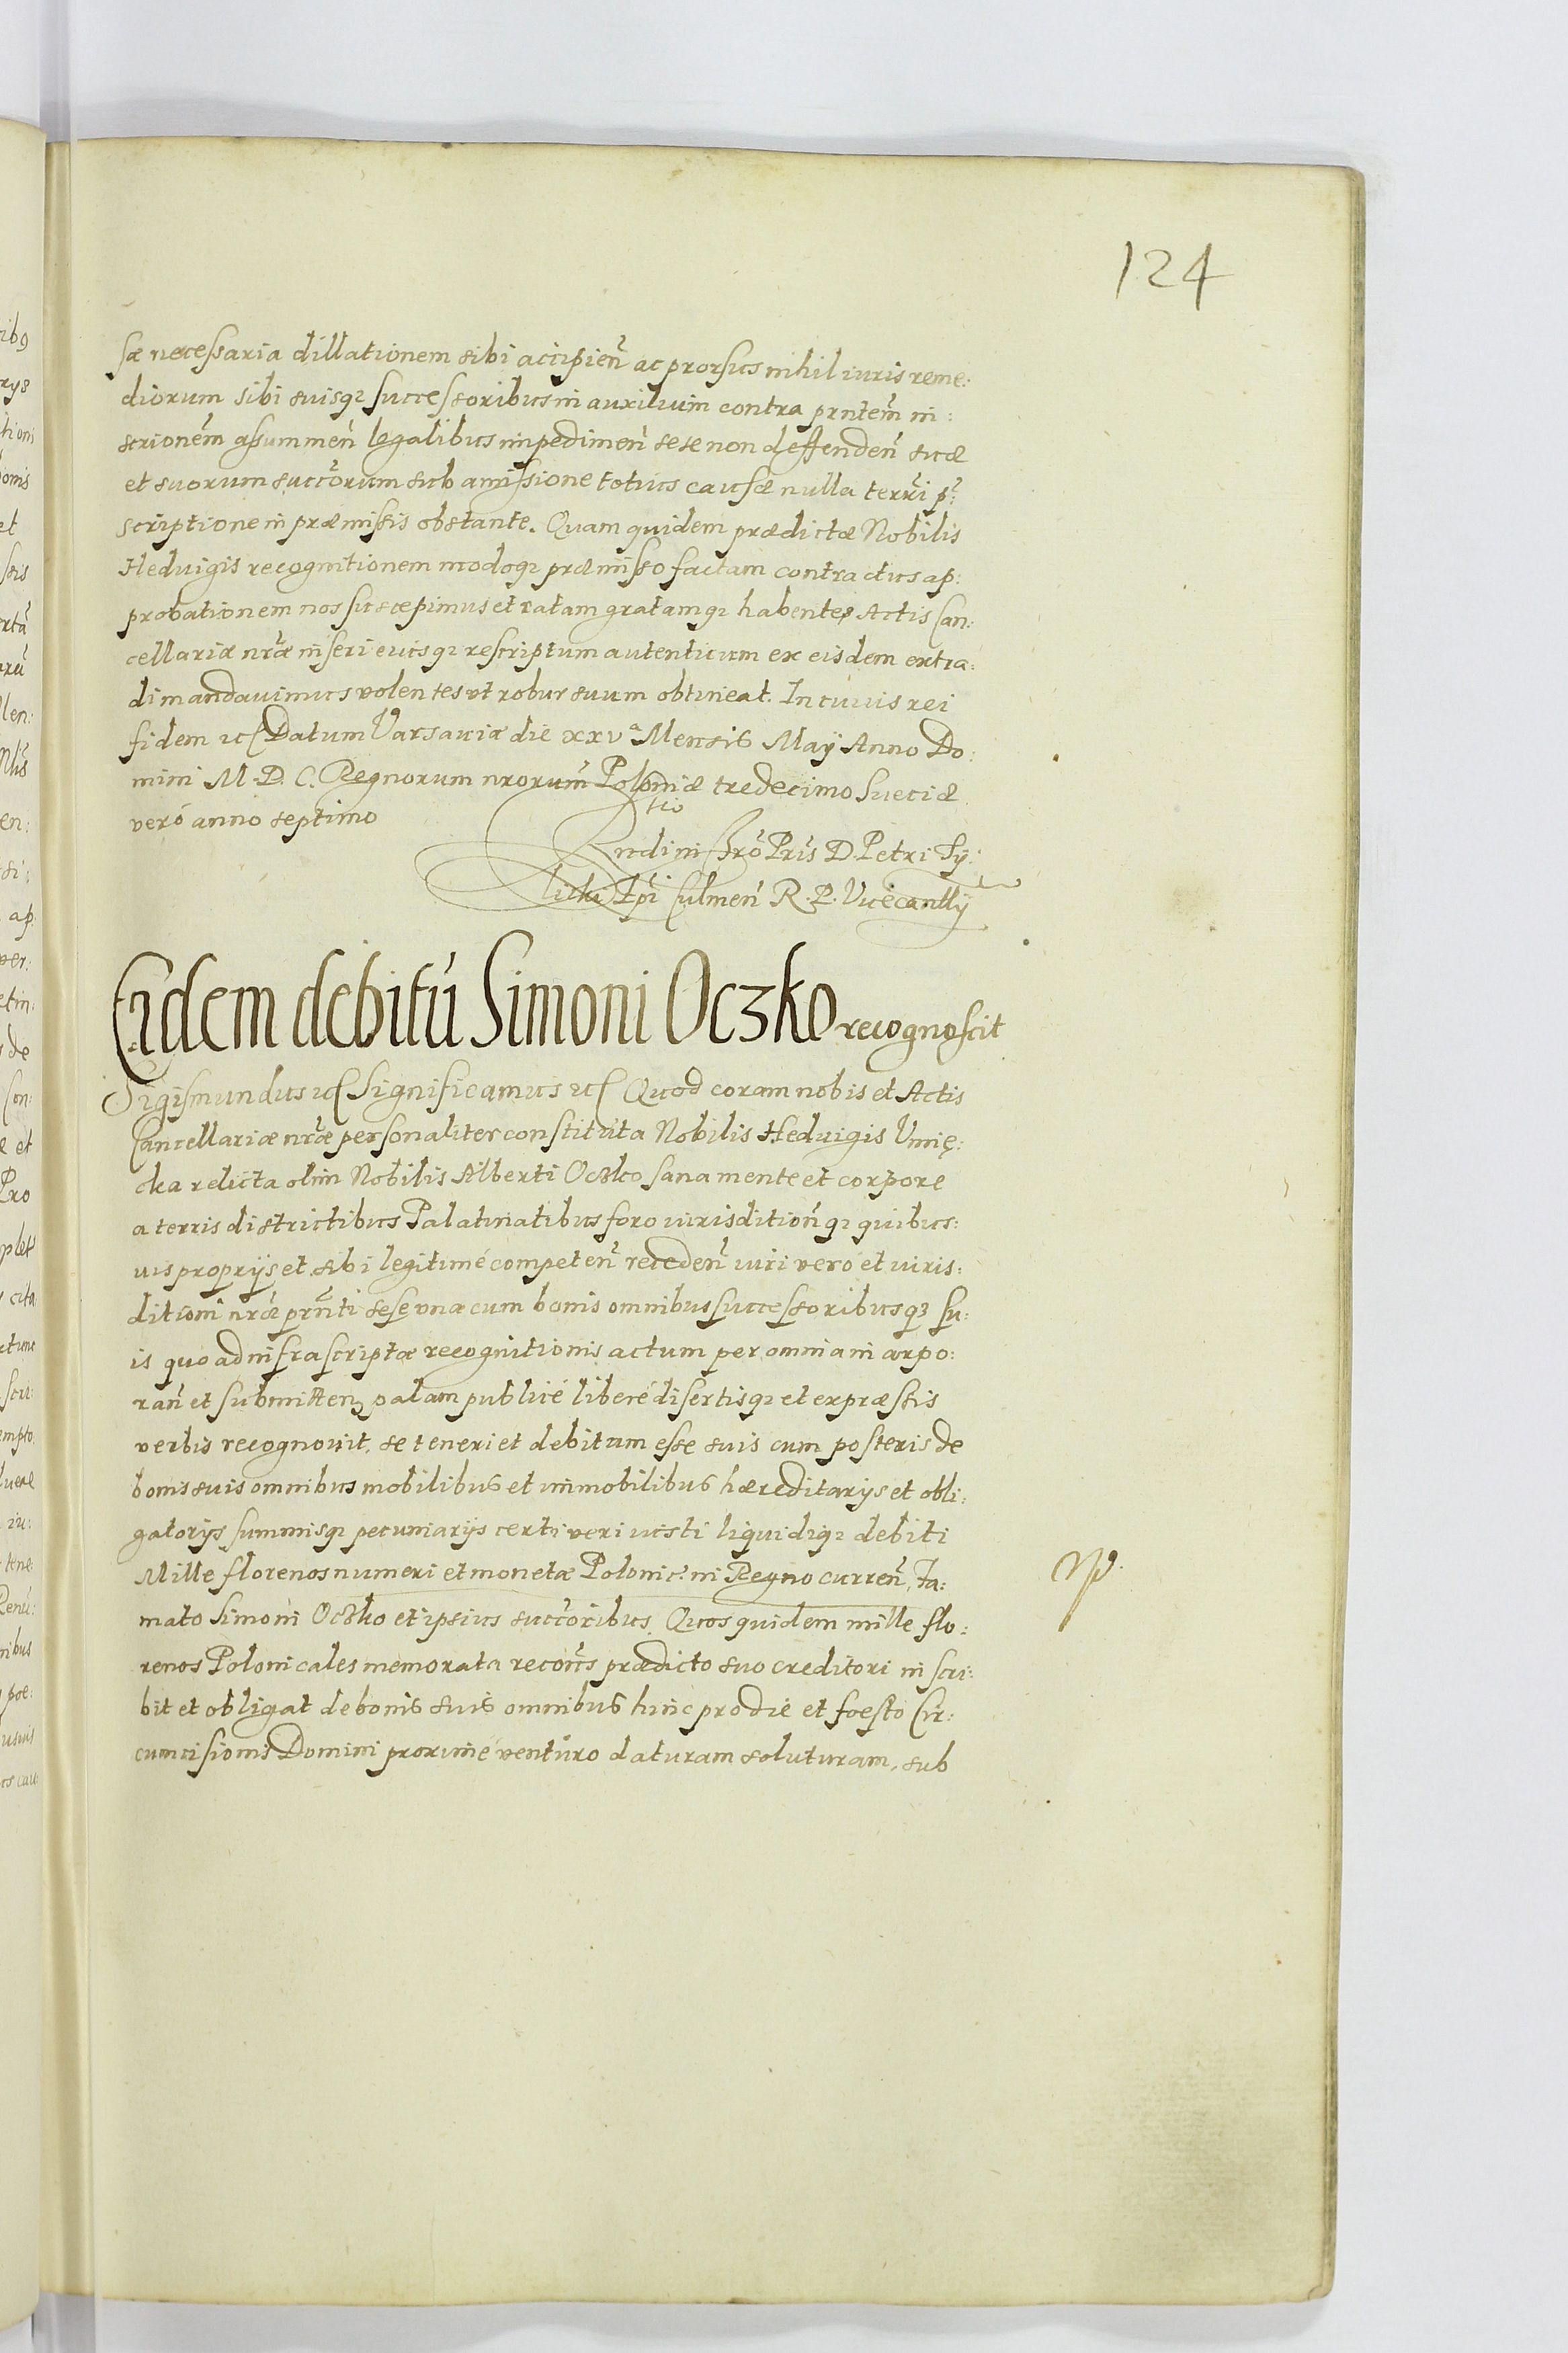 124
sæ necessaria dillationem sibi accipień ac prorsus nihil iuris reme:
diorum sibi suisq₃ successoribus in auxilium contra prntem̃ in:
scrionem̃ assummeń legalibus impedimeń sese non deffendeń suæ
et suorum succ̃orum sub amissione totius causæ nulla terr̃i p̃:
scriptione in præmissis obstante. Quam quidem prædictæ Nobilis
Heduigis recognitionem modoq₃ præmisso factam contractus ap:
probationem nos suscepimus et ratam gratamq₃ habentes Actis Can:
cellariæ nr̃æ inseri eiusq₃ rescriptum autenticum ex eisdem extra:
di mandauimus volentes vt robur suum obtineat. In cuius rei
fidem etc Datum Varsauiæ die xxvᵃ Mensis Maÿ Anno Do:
mini M.D.C. Regnorum nrorum̃ Poloniæ tredecimo Sueciæ
veró anno septimo
Rndi in Chrõ Pris̃ D. Petri Ty:
licki Ep̃i Culmeń R.P. Vicecancllÿ
Eadem debitū Simoni Oczko recognoscit
Sigismundus etc Significamus etc Quod coram nobis et Actis
Cancellariæ nr̃æ personaliter constituta Nobilis Heduigis Vmię:
cka relicta olim Nobilis Alberti Oczko sana mente et corpore
a terris districtibus Palatinatibus foro iurisditioń q₃ quibus:
uis proprijs et sibi legitimé competeń recedeń iuri veró et iuris:
ditioni nr̃æ prñti sese vna cum bonis omnibus successoribusq₃ su:
is quo ad infrascriptæ recognitionis actum per omnia in corpo:
rań et submitteń palam publicé liberé disertisq₃ et expræssis
verbis recognouit, se teneri et debitam esse suis cum posteris de
bonis suis omnibus mobilibus et immobilibus hæreditarijs et obli:
gatorijs summisq₃ pecuniarijs certi veri iusti liquidiq₃ debiti
Mille florenos numeri et monetæ Polonic̃: in Regno curreń, Fa:
mato Simoni Oczko et ipsius succ̃oribus. Quos quidem mille flo:
renos Polonicales memorata recoñs prædicto suo creditori inscri:
bit et obligat de bonis suis omnibus hinc pro die et foesto Cir:
cumcisionis Domini proximé venturo daturam soluturam, sub